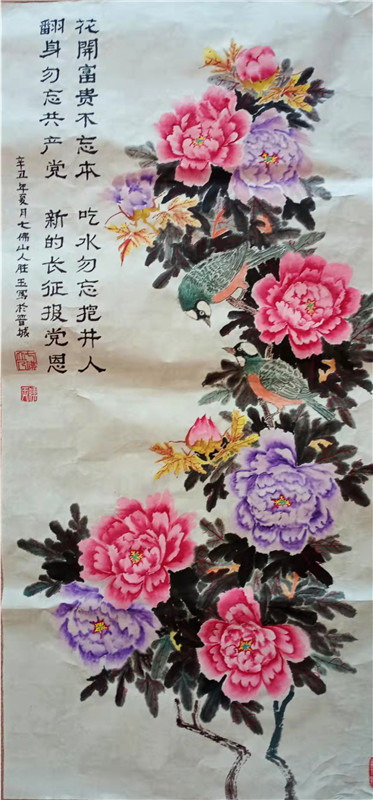 花開富贵不忘本 吃水勿忘挖井人
翻身勿忘共产党 新的长征报党恩
辛丑年夏月七佛山人胜玉寫於晋城